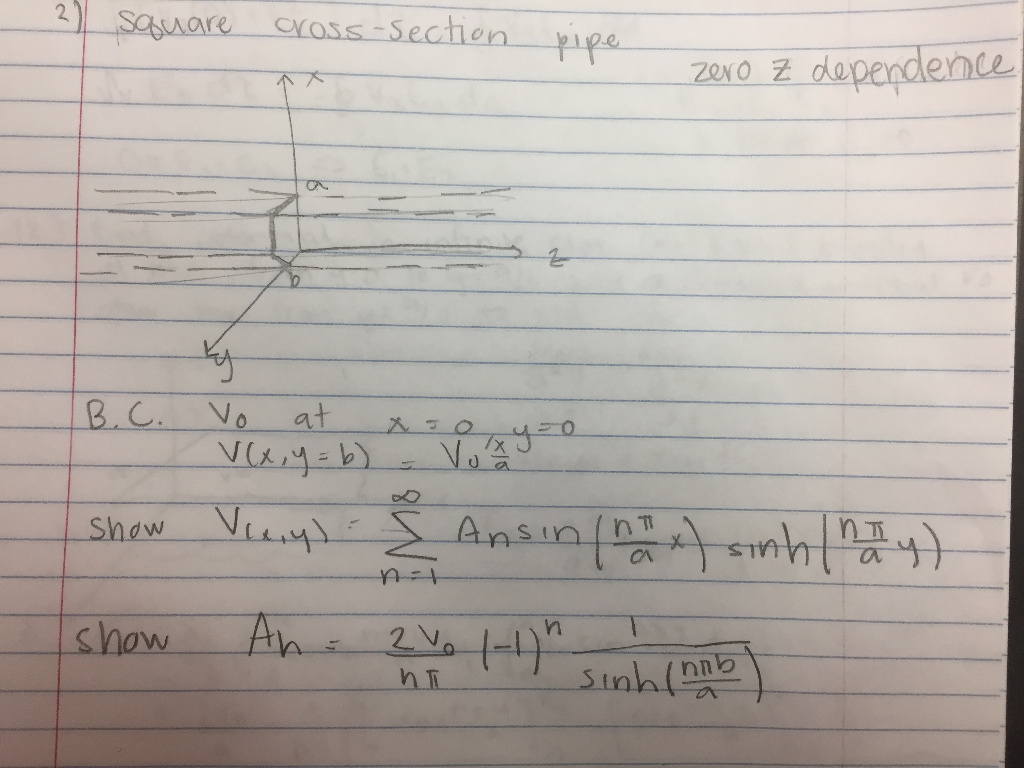 2) square cross-section pipe
zero z dependence
x
a
z
b
y
B.C. V₀ at x = 0 y=0
V(x,y=b) = V₀ x/a
show V(x,y) = ∞ Σ n=1 An sin (nπ/a x) sinh (nπ/a y)
show An = 2V₀/nπ (-1)ⁿ 1/sinh(nπb/a)